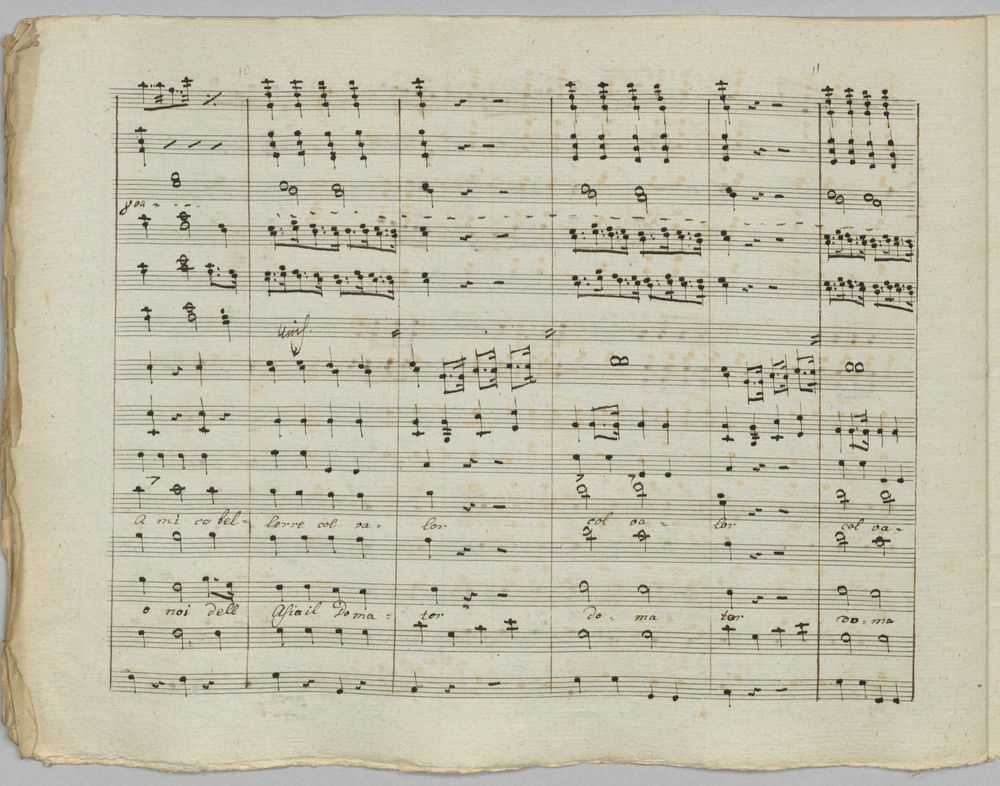 10 11
8va
unis.
A mi co bel- lerre col va- lor col va- lor col va-
o noi dell Asia il Doma- tor do- ma tor do- ma